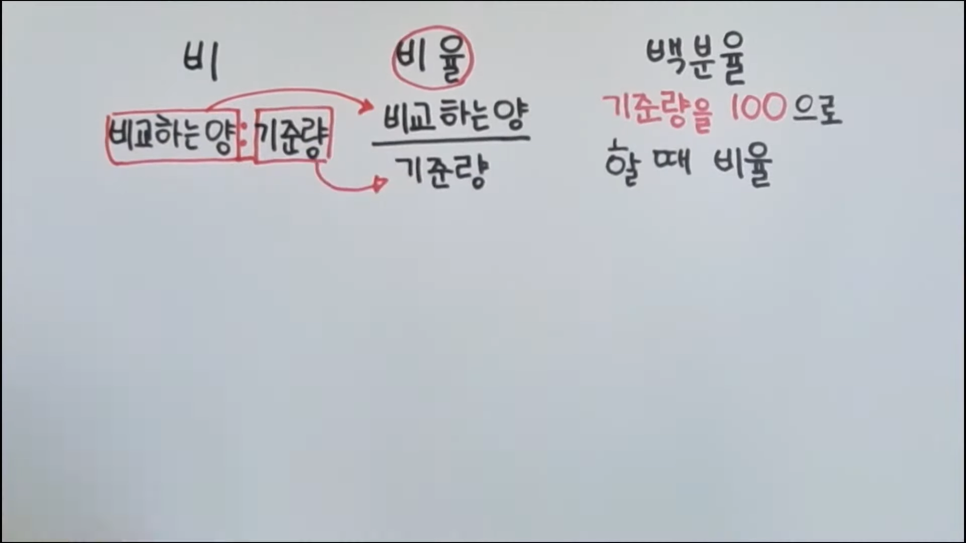 비
비교하는양:기준량
비율
비교하는양
기준량
백분율
기준량을 100으로
할 때 비율